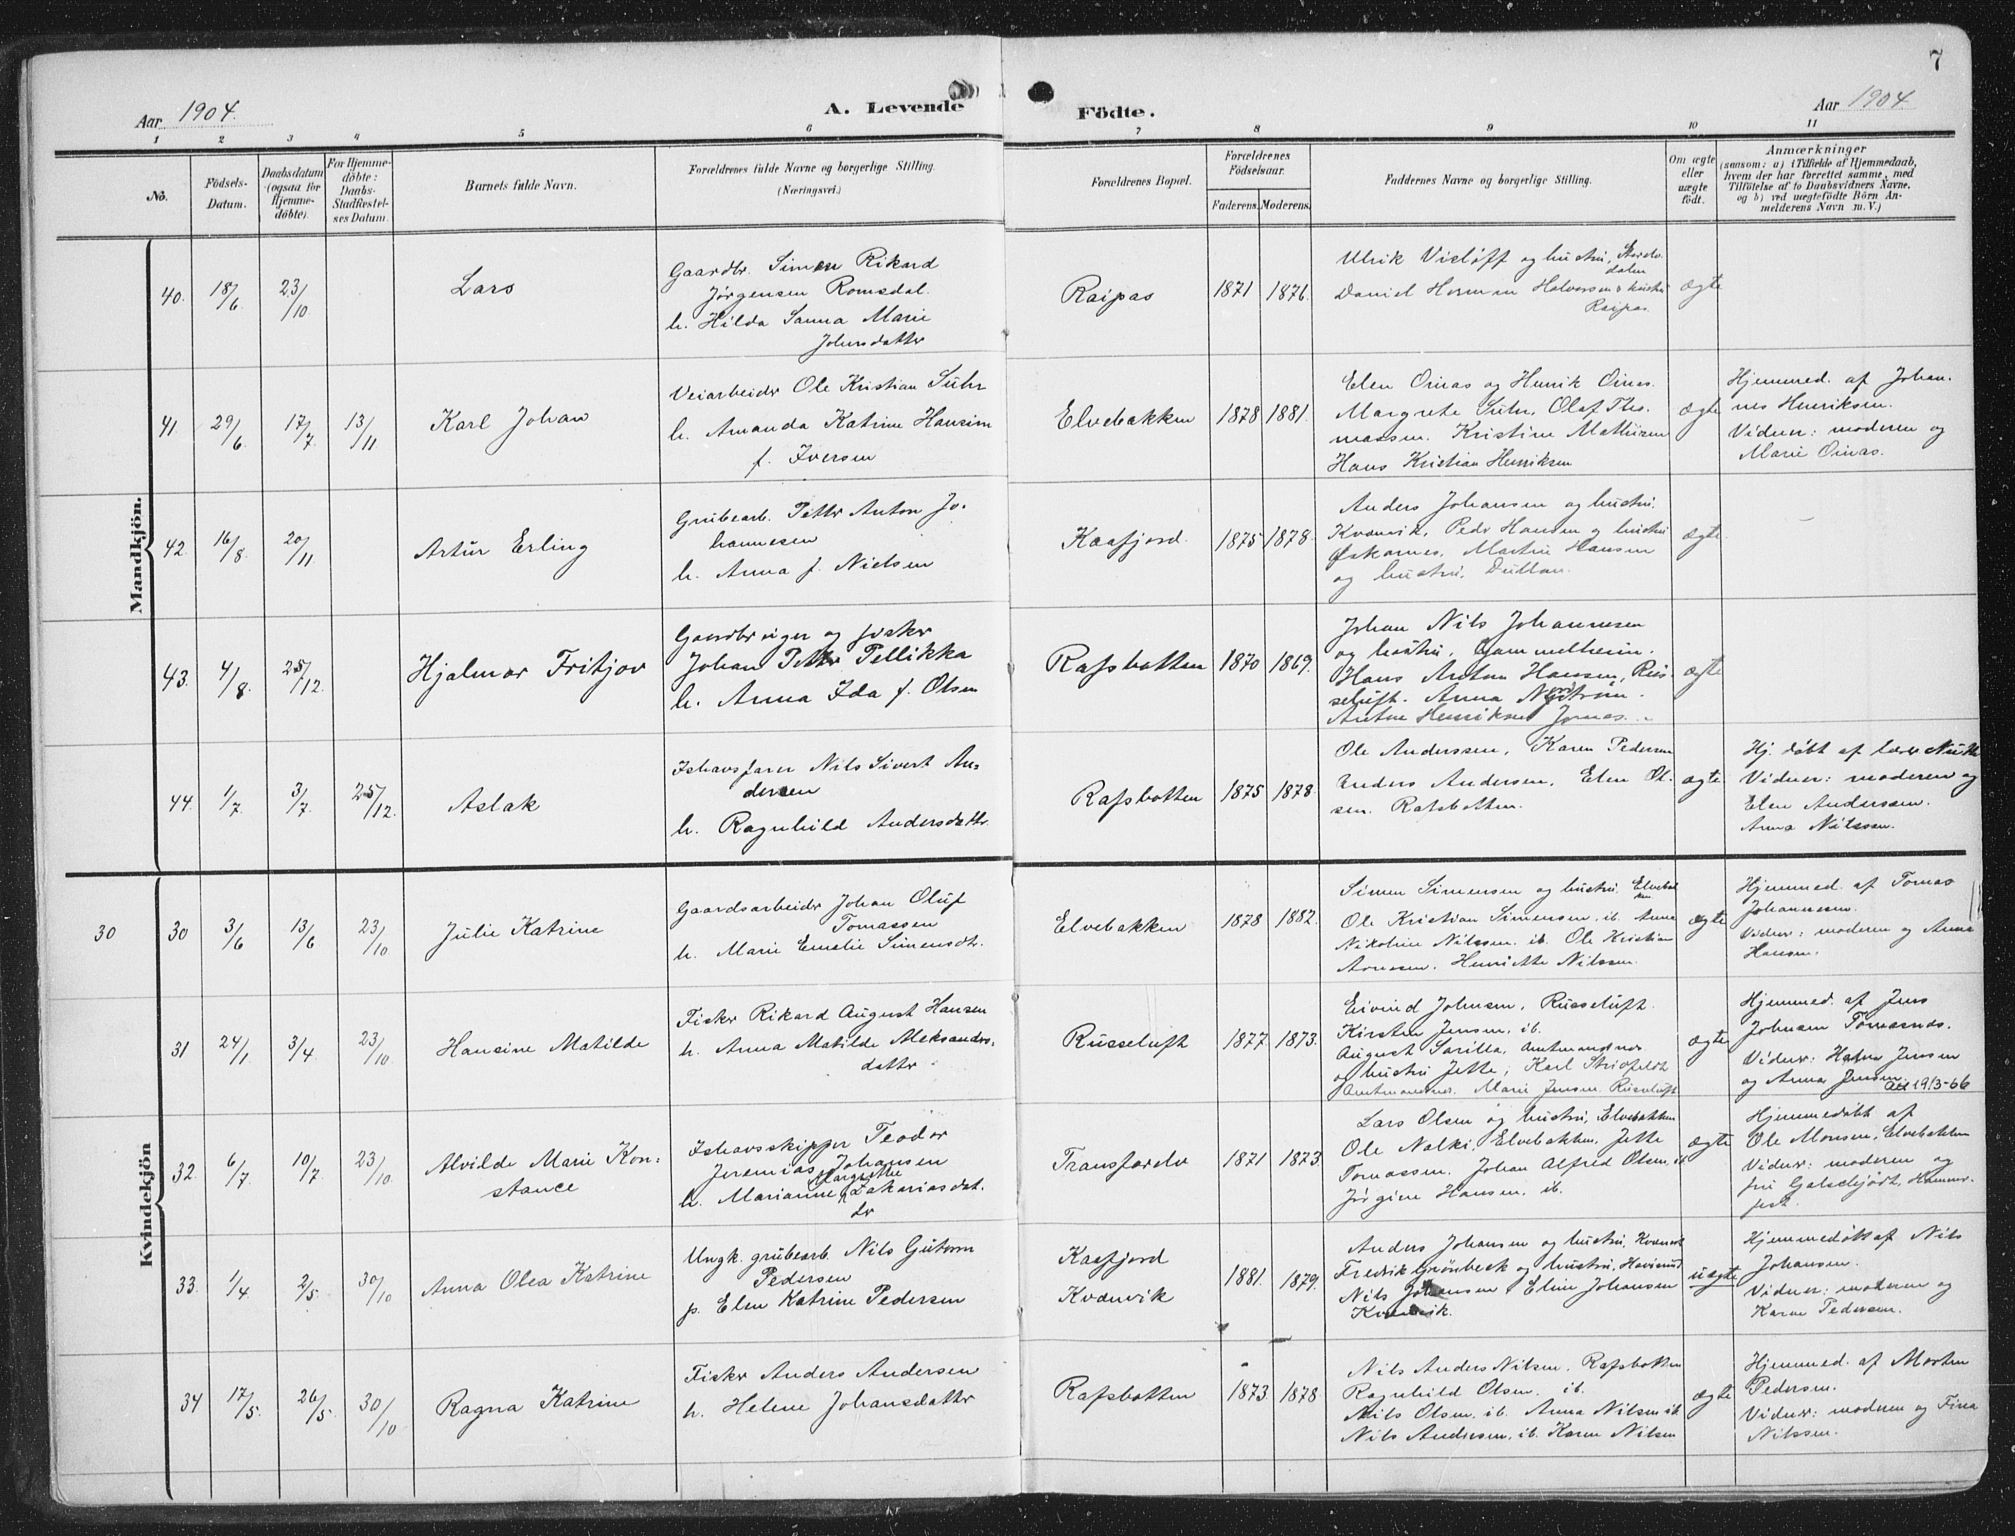 7
Aar 1904.
A. Levende
Födte.
Aar 1904.
1 2 3 4 5 6 7 8 9 10 11
No.
Födsels-
Datum.
Daabsdatum
(ogsaa for
Hjemme-
döbte).
For Hjemme-
döbte:
Daabs-
Stadfæstel-
ses Datum.
Barnets fulde Navn.
Forældrenes fulde Navne og borgerlige Stilling.
(Næringsvei.)
Forældrenes Bopæl.
Forældrenes
Födselsaar.
Faderens. Moderens.
Faddernes Navne og borgerlige Stilling.
Om ægte
eller
uægte
födt.
Anmærkninger
(saasom: a) i Tilfælde af Hjemmedaab,
hvem der har forrettet samme, med
Tilföielse af to Daabsvidners Navne,
og b) ved uægtefödte Börn An-
melderens Navn m. V.)
Mandkjön.
40. 18/6 23/10
Lars
Gaardbr. Simon Rikard
Jørgensen Romsdal.
h. Hilda Sanna Marie
Johnsdatter
Raipas
1871 1876.
Ulrik Visløff og hustru,
dalen
Daniel Herman Halvorsen & hustru
Raipas.
ægte
41 29/6 17/7 13/11
Karl Johan
Veiarbeider Ole Kristian Suhr
h. Amanda Katrine Hansine
f. Iversen
Elvebakken
1878 1881.
Elen Oinas og Henrik Oinas.
Margrete Suhr, Olaf Tho-
massen. Kristine Mathisen
Hans Kristian Henriksen
ægte
Hjemmed. af Johan-
nes Henriksen.
Vidner: moderen og
Marie Oinas.
42. 16/8 20/11
Artur Erling
Grubearb. Petter Anton Jo-
hannesen
h. Anna f. Nielsen
Kaafjord.
1875 1878.
Anders Johansen og hustru,
Kvænvik, Peder Hansen og hustru
Øskarnes, Martin Hansen
og hustru,
ægte
43. 4/8. 25/12.
Hjalmar Fritjov
Gaardbruger og fisker
Johan Petter Pellikka
h. Anna Ida f. Olsen
Rafsbotten
1870 1869.
Johan Nils Johannesen
og hustru, Gammelheim.
Hans Anton Hansen, Rus-
seluft. Anna
Anton Henriksen
ægte
44. 1/7. 3/7 25/12.
Aslak
Ishavsfarer Nils Sivert An-
dersen
h. Ragnhild Andersdatter
Rafsbotten
1875 1878.
Ole Anderssen, Karen Pedersen
Anders Andersen, Elen Ol-
sen. Rafsbotten.
ægte
Hj. døbt af lærer
Vidner: moderen og
Elen Anderssen.
Anna Nilssen.
Kvindekjön
30 30 3/6 13/6 23/10
Julie Katrine
Gaardsarbeider Johan Oluf
Tomassen
h. Marie Emelie Simensdtr.
Elvebakken
1878 1882.
Simen Simensen og hustru, Elvebak-
ken
Ole Kristian Simensen, ib. Anna
Nikoline Nilssen. ib. Ole Kristian
Aronsen. Henriette Nilssen.
ægte
Hjemmed. af Tomas
Johannessen.
Vidner: moderen og Anna
Hansen.
31 24/1. 3/4 23/10.
Hansine Matilde
Fisker Rikard August Hansen
h. Anna Matilde Aleksanders-
datter
Russeluft
1877. 1873.
Eivind Johnsen, Russeluft.
Kirsten Jensen, ib.
August Sarilla, Amtmandsnes
og hustru Jette, Karl Stridfeldt
Amtmandsnes. Marie Jensen. Russeluft
ægte
Hjemmed. af Jens
Johnsen Tomasnes.
Vidner: Hanna Jensen
og Anna Jensen
Att 1913-66
32. 6/7. 10/7 23/10.
Alvilde Marie Kon-
stance
Ishavsskipper Teodor
Jeremias Johansen
Margrethe
h. Marianne Zakariasdat-
der
Transfardv
1871 1873
Lars Olsen og hustru, Elvebakken
Ole Nalki, Elvebakken, Jette
Tomassen. Johan Alfred Olsen, ib
Jørgine Hansen, ib.
ægte
Hjemmedøbt af
Ole Monsen, Elvebakken
Vidner: moderen og
fru Hammer-
fest.
33. 1/4. 2/5. 30/10
Anna Olea Katrine
Ungk. grubearb. Nils Guttorm
Pedersen
p. Elen Katrine Pedersen
Kaafjord
Kvænvik
1881. 1879.
Anders Johansen og hustru, Kvænvik
Fredrik Grønbeck og hustru,
Nils Johansen Eline Johansen
Kvænvik.
uægte
Hjemmedøbt af Nils
Johansen.
Vidner: moderen og
Karen Pedersen.
34 17/5. 26/5 30/10
Ragna Katrine
Fisker Anders Andersen
h. Helene Johansdatter
Rafsbotten
1873. 1878
Nils Anders Nilsen. Rafsbotten
Ragnhild Olsen. ib.
Nils Olsen, ib. Anna Nilsen ib.
Nils Andersen, ib. Karen Nilsen
ægte
Hjemmed. af Morten
Pedersen.
Vidner: moderen og Fina
Nilssen.